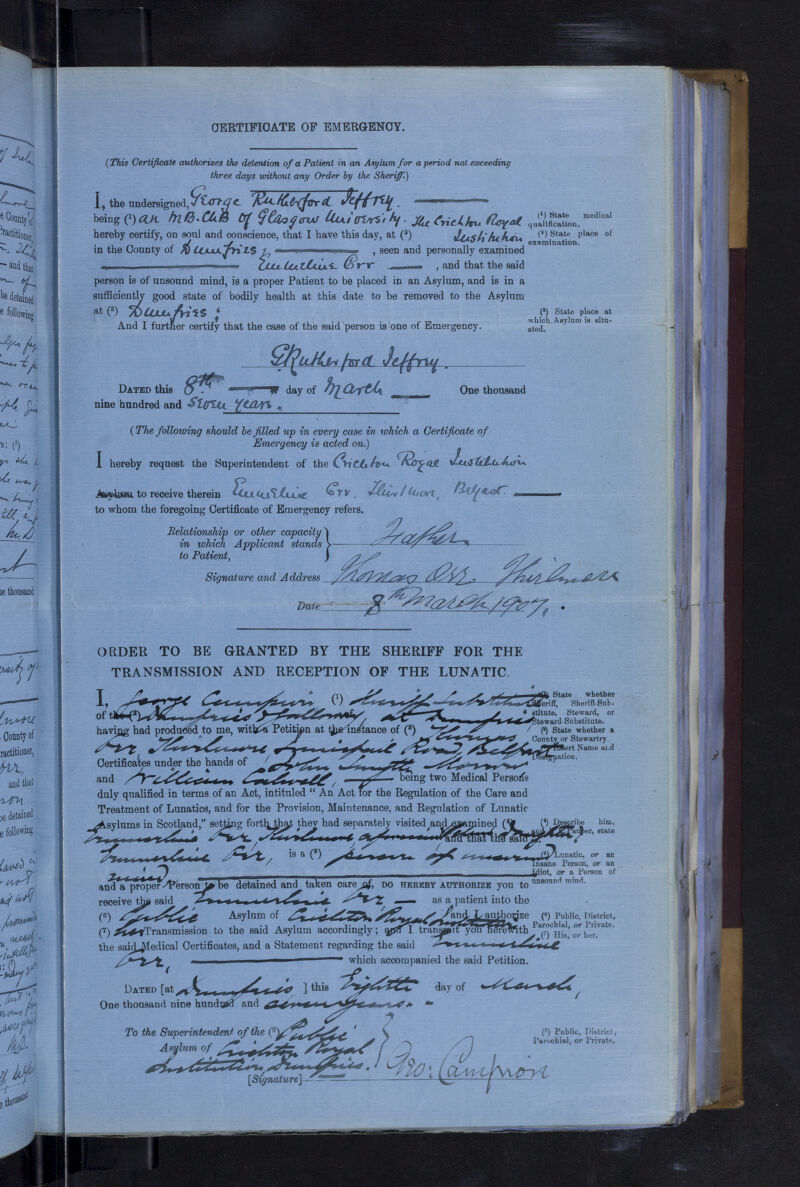 CERTIFICATE OF EMERGENCY.
(This Certificate authorizes the detention of a Patient in an Asylum for a period not exceeding
three days without any Order by the Sheriff.)
I, the undersigned, George Rutherford Jeffrey.
being (1) an M.B. Ch.B of Glasgow University. The Crichton Royal
hereby certify, on soul and conscience, that I have this day, at (2) Institution
in the County of Dumfries, seen and personally examined
Emmeline Orr, and that the said
person is of unsound mind, is a proper Patient to be placed in an Asylum, and is in a
sufficiently good state of bodily health at this date to be removed to the Asylum
at (3) Dumfries.
And I further certify that the case of the said person is one of Emergency.
(1) State medical
qualification.
(2) State place of
examination.
(3) State place at
which Asylum is situ-
ated.
G Rutherford Jeffrey.
DATED this 8th day of March One thousand
nine hundred and Seven years.
(The following should be filled up in every case in which a Certificate of
Emergency is acted on.)
I hereby request the Superintendent of the Crichton Royal Institution
Asylum to receive therein Emmeline Orr. Thirlmore, Belfast.
to whom the foregoing Certificate of Emergency refers.
Relationship or other capacity
in which Applicant stands
to Patient,
Father
Signature and Address Thomas Orr Thirlmere
Date 8th March 1907.
ORDER TO BE GRANTED BY THE SHERIFF FOR THE
TRANSMISSION AND RECEPTION OF THE LUNATIC.
I, George Campion (1) Sheriff Substitute
of the (2) Dumfries & Galloway, at Dumfries
having had produced to me, with a Petition at the instance of (3) Thomas
Orr, Thirlmere Road, Belfast
Certificates under the hands of John Smyth Morrow
and William Calwell, being two Medical Persons
duly qualified in terms of an Act, intituled "An Act for the Regulation of the Care and
Treatment of Lunatics, and for the Provision, Maintenance, and Regulation of Lunatic
Asylums in Scotland," setting forth that they had separately visited and examined (4)
Emmerline Orr Thirlmere and that the said
Emmerline Orr, is a (5) person of unsound
mind
and a proper Person to be detained and taken care of, DO HEREBY AUTHORIZE you to
receive the said Emmerline Orr as a patient into the
(6) Public Asylum of Crichton Royal Institution and I authorize
(7) her Transmission to the said Asylum accordingly; and I transmit you herewith
the said Medical Certificates, and a Statement regarding the said Emmerline
Orr, which accompanied the said Petition.
(1) State whether
Sheriff, Sheriff-Sub-
stitute, Steward, or
Steward-Substitute.
(2) State whether a
County or Stewartry.
(3) Insert Name and
Designation.
(4) Describe him,
and if a Pauper, state
so.
(5) Lunatic, or an
Insane Person, or an
Idiot, or a Person of
unsound mind.
(6) Public, District,
Parochial, or Private.
(7) His, or her.
DATED [at Dumfries ] this Eighth day of March,
One thousand nine hundred and seven years.
To the Superintendent of the (8) Public
Asylum of Crichton Royal
Institution, Dumfries.
[Signature] Geo: Campion
(8) Public, District,
Parochial, or Private.